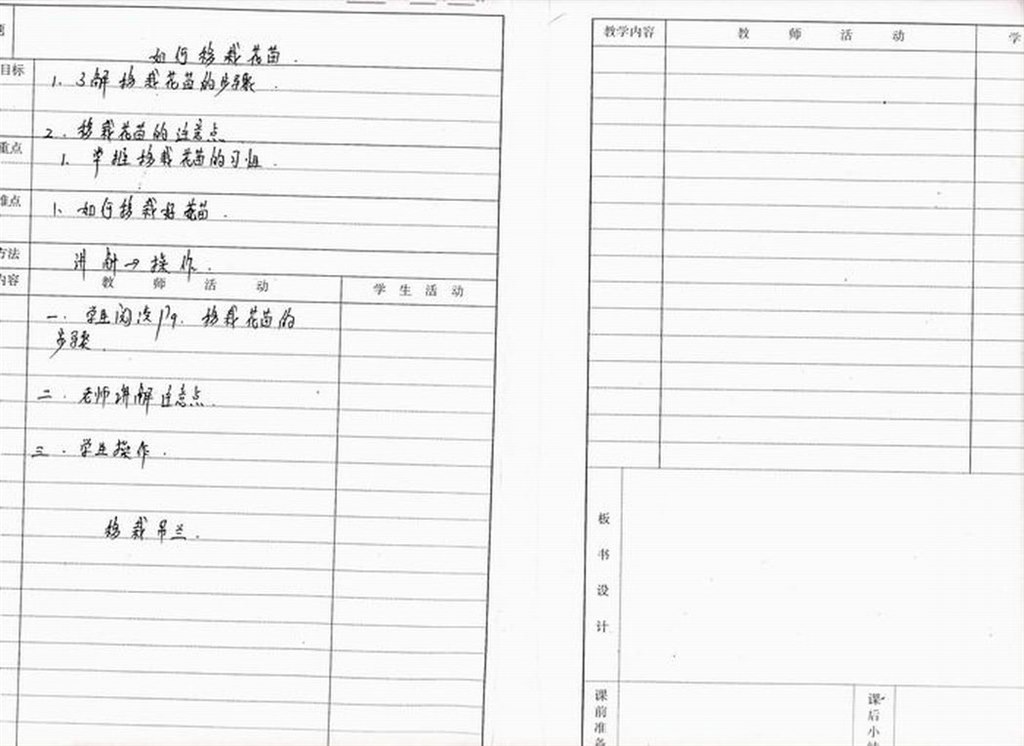 题
如何移栽花苗.
目标
1. 了解移栽花苗的步骤.
2. 移栽花苗的注意点
重点
1. 掌握移栽花苗的习惯.
难点
1. 如何移栽好花苗.
方法
讲解→操作.
内容 教师活动 学生活动
一. 学生阅读P79. 移栽花苗的
步骤.
二. 老师讲解注意点.
三. 学生操作.
移栽吊兰.
教学内容 教师活动 学
板书设计
课前准备
课后小